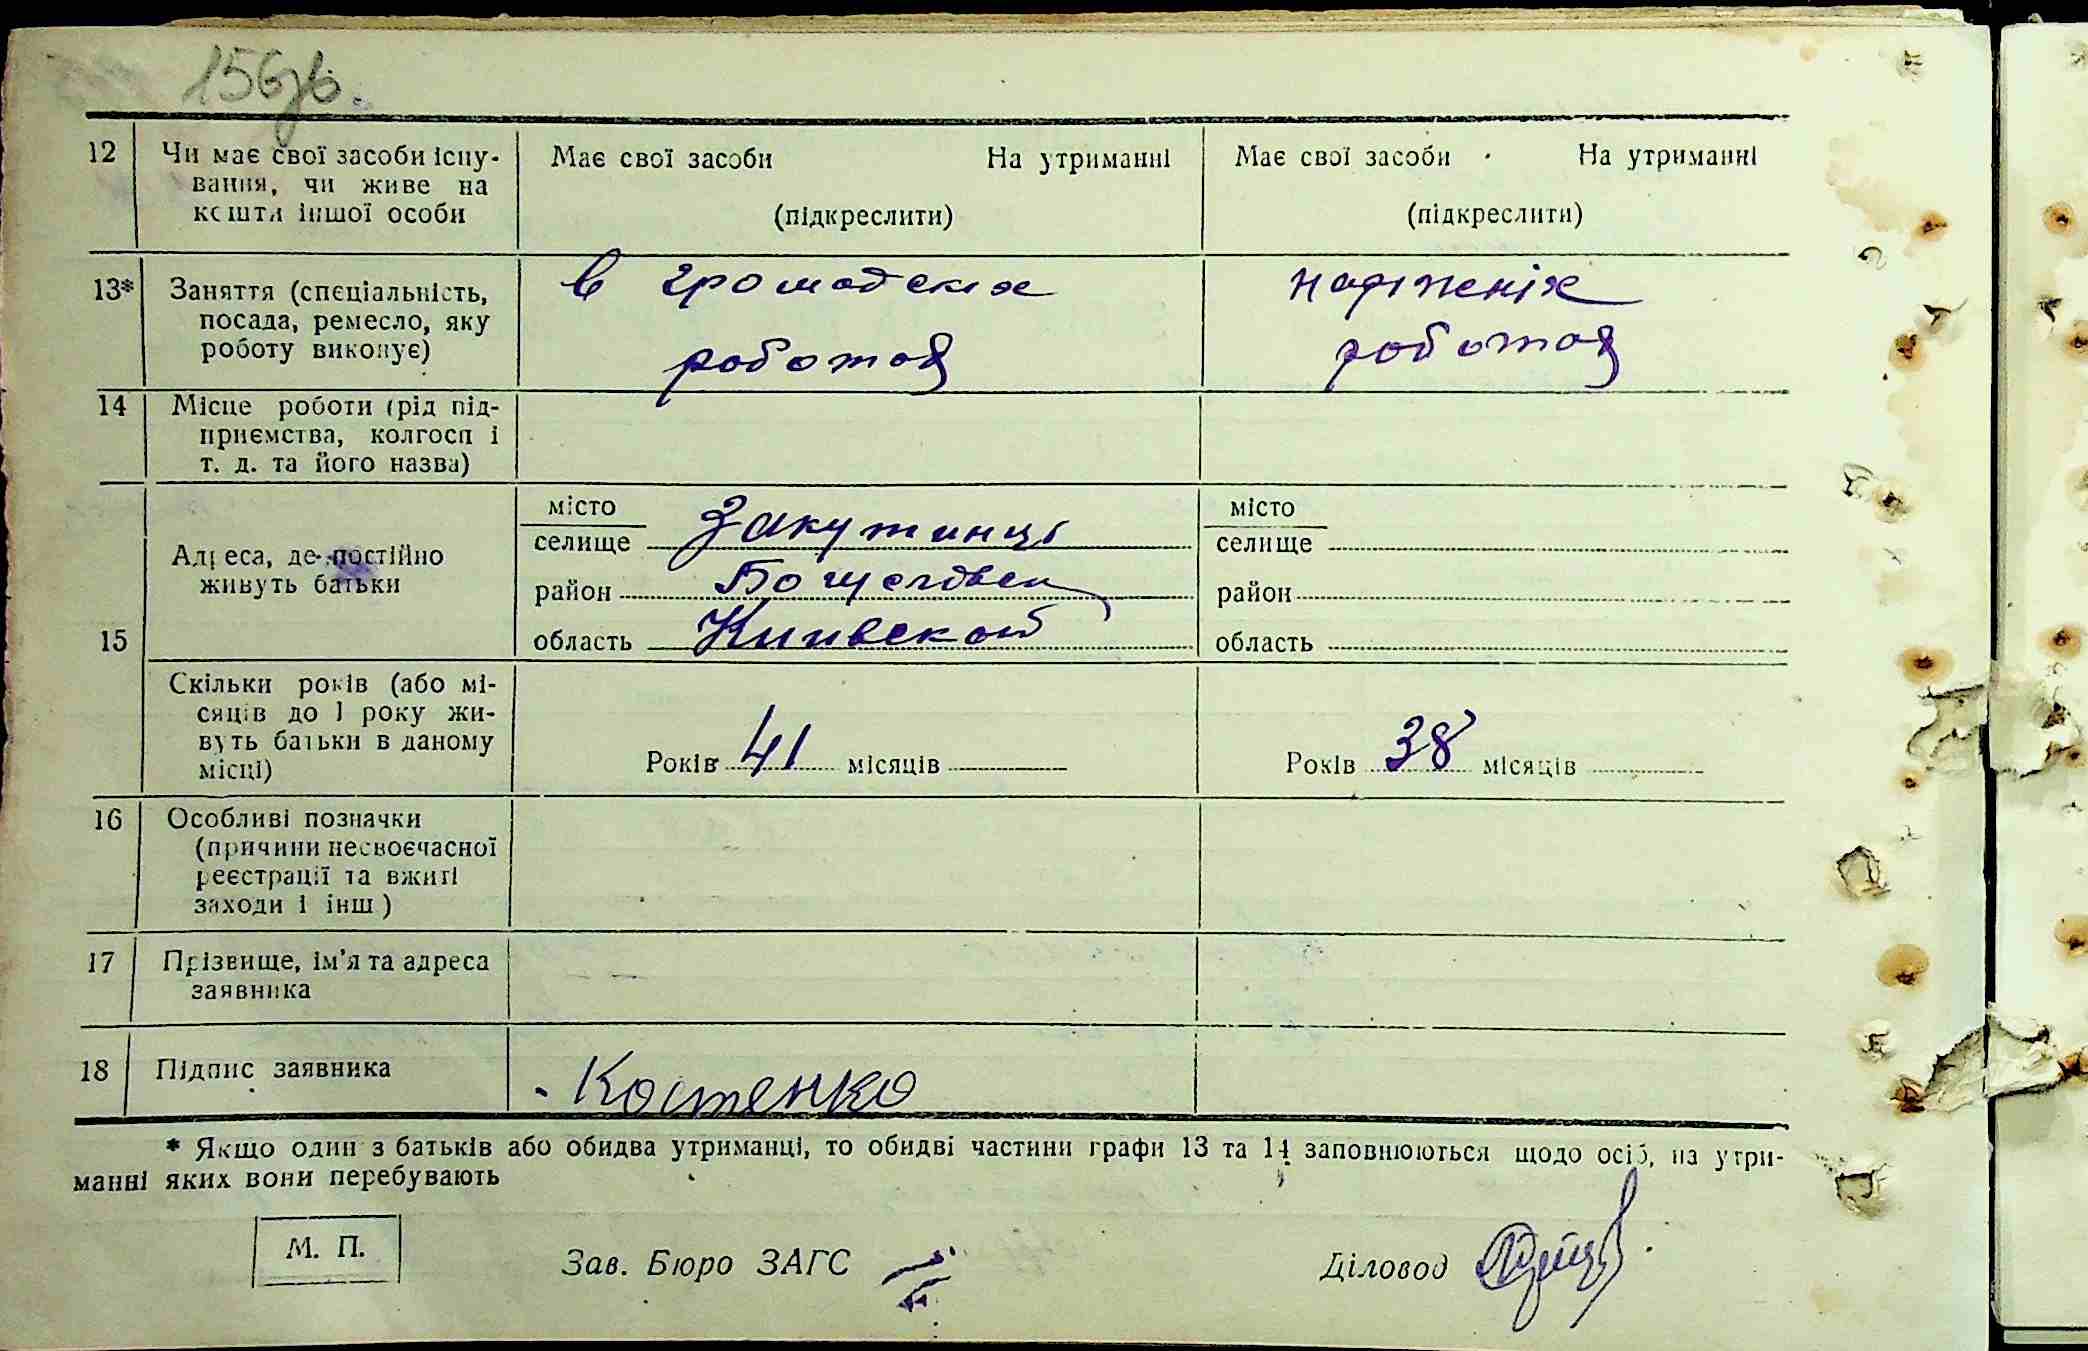 156зв.
12 Чи має свої засоби існу- Має свої засоби На утриманні Має свої засоби На утриманні
вання, чи живе на
кошти іншої особи (підкреслити) (підкреслити)
13* Заняття (спеціальність, в громадских
посада, ремесло, яку
роботу виконує) роботах роботах
14 Місце роботи (рід під-
приємства, колгосп і
т. д. та його назва)
місто місто
селище Закутинці селище
Адреса, де постійно
живуть батьки
район район
15 область Киивской область
Скільки років (або мі-
сяців до 1 року жи-
вуть батьки в даному
місці) Років 41 місяців Років 38 місяців
16 Особливі позначки
(причини несвоєчасної
реєстрації та вжиті
заходи і інш)
17 Прізвище, ім'я та адреса
заявника
18 Підпис заявника Костенко
* Якщо один з батьків або обидва утриманці, то обидві частини графи 13 та 14 заповнюються щодо осіб, на утри-
манні яких вони перебувають
М. П. Зав. Бюро ЗАГС Діловод